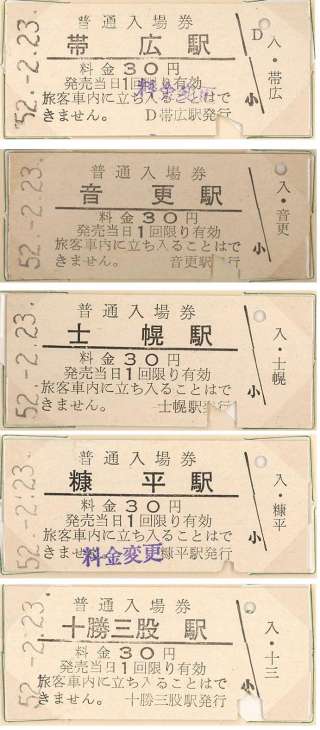 52.-2.23.
普通入場券
帯広駅
料金30円
発売当日1回限り有効
旅客車内に立ち入ることはで
きません。 D帯広駅発行
D
入・帯広
小
52.-2.23.
普通入場券
音更駅
料金30円
発売当日1回限り有効
旅客車内に立ち入ることはで
きません。 音更駅発行
入・音更
小
52.-2.23.
普通入場券
士幌駅
料金30円
発売当日1回限り有効
旅客車内に立ち入ることはで
きません。 士幌駅発行
入・士幌
小
52.-2.23.
普通入場券
糠平駅
料金30円
発売当日1回限り有効
旅客車内に立ち入ることはで
きません。 糠平駅発行
料金変更
入・糠平
小
52.-2.23.
普通入場券
十勝三股駅
料金30円
発売当日1回限り有効
旅客車内に立ち入ることはで
きません。 十勝三股駅発行
入・十三
小